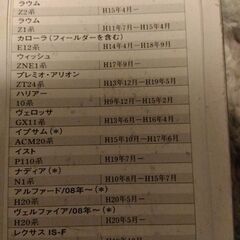 ラウム
Z2系 H15年4月－
ラウム
Z1系 H11年7月－H15年4月
カローラ(フィールダーを含む)
E12系 H14年4月－H18年9月
ウィッシュ
ZNE1系 H17年9月－
プレミオ・アリオン
ZT24系 H13年12月－H19年5月
ハリアー
10系 H9年12月－H15年2月
ヴェロッサ
GX11系 H13年6月－H16年4月
イプサム(*)
ACM20系 H15年10月－H17年6月
イスト
P110系 H19年7月－
ナディア(*)
N1系 H10年8月－H15年7月
アルファード/08年～(*)
H20系 H20年5月－
ヴェルファイア/08年～(*)
H20系 H20年5月－
レクサス IS-F